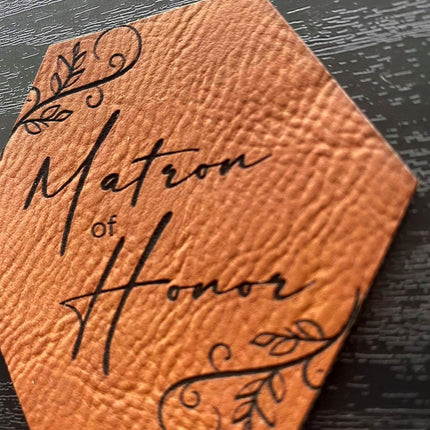 Matron
of
Honor